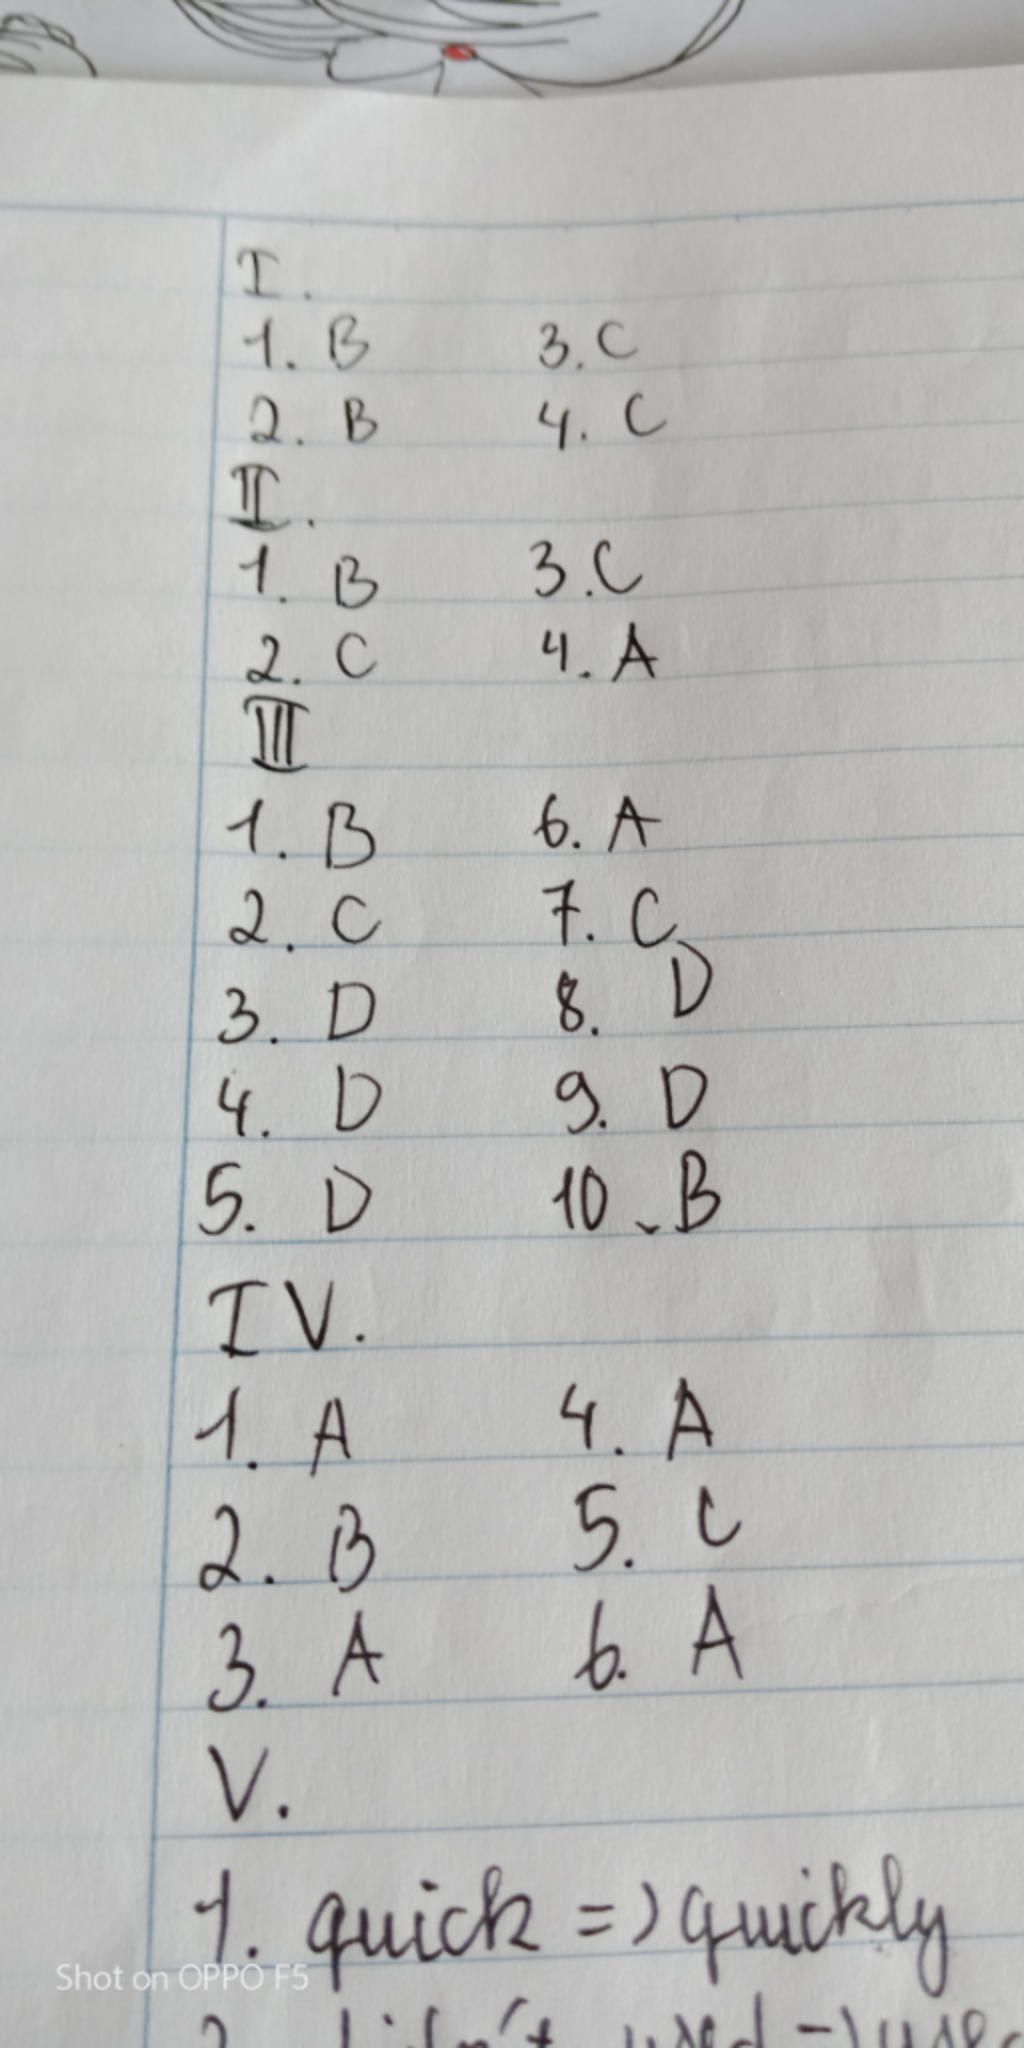 I.
1. B 3. C
2. B 4. C
II.
1. B 3. C
2. C 4. A
III
1. B 6. A
2. C 7. C
3. D 8. D
4. D 9. D
5. D 10. B
IV.
1. A 4. A
2. B 5. C
3. A 6. A
V.
1. quick => quickly
Shot on OPPO F5